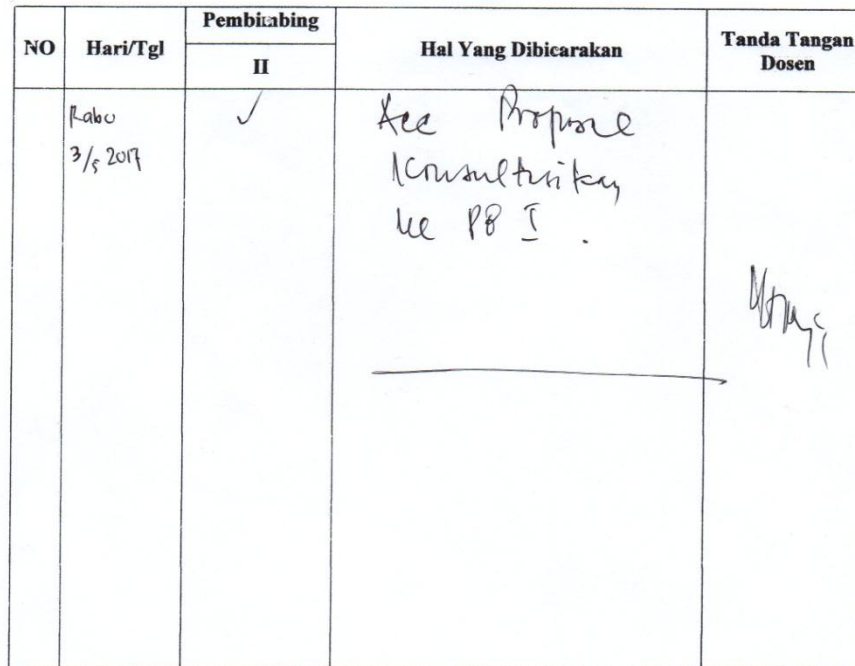 NO Hari/Tgl Pembimbing Hal Yang Dibicarakan Tanda Tangan
II Dosen
Rabo ✓ Acc Proposal
3/5 2017 Konsultasikan
ke PB I .